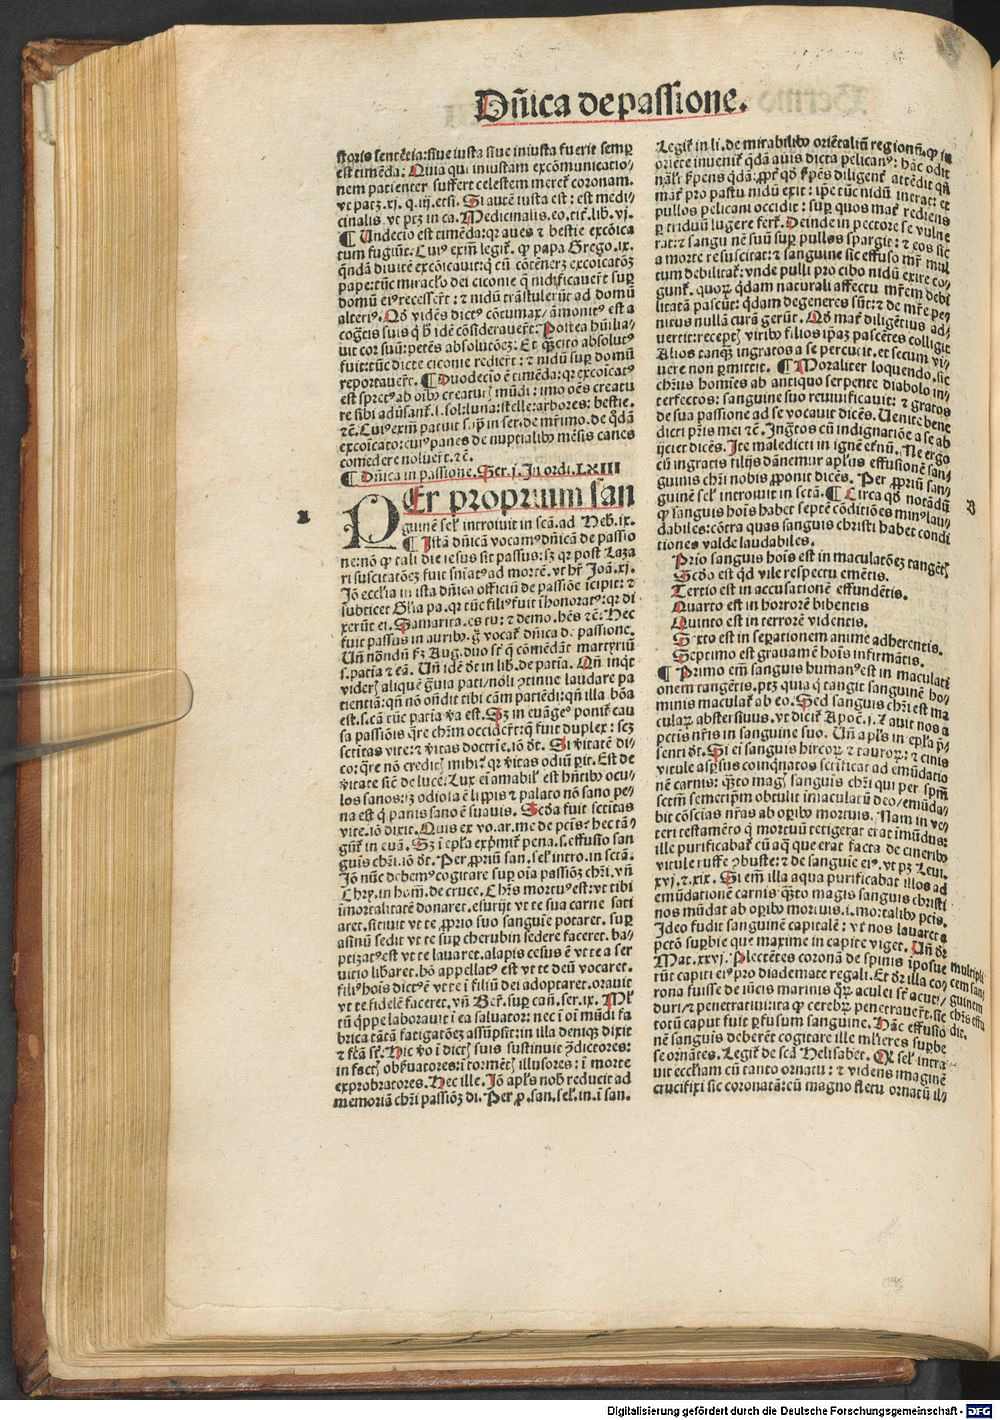 Dñica de passione.
storis sentẽtia: siue iusta siue iniusta fuerit semper
est timẽda: Quia qui iniustam excõmunicatio⸗
nem patienter suffert celestem meret̃ coronam.
vt patʒ. xj. q. iij. etsi. Si autẽ iusta est: est medi⸗
cinalis. vt ptʒ in ca. Medicinalis. eo. tit̃. lib. vj.
¶ Undecĩo est timẽda: qr aues ⁊ bestie excõica
tum fugiũt. Cuiꝰ exm̃ legit̃. ꝙ papa Grego. ix.
q̃ndã diuitẽ excõicauit: q cũ cõtẽneret excõicatõʒ
pape: tũc miraclo dei ciconie q̃ nidificauert̃ sup
domũ eiꝰ recesser̃t: ⁊ nidũ trãstulerũt ad domũ
alteriꝰ. Qõ vidẽs dictꝰ cõtumax/ ãmonitꝰ est a
cogĩtis suis q̃ h̃ idẽ cõsiderauer̃t: Postea hũilia⸗
uit cor suũ: petẽs absolutõeʒ: Et q̃cito absolutꝰ
fuit: tũc dicte ciconie redier̃t: ⁊ nidũ sup domũ
reportauer̃t. ¶ Duodecĩo ẽ timẽda: qr excõicatꝰ
est spretꝰ ab oĩbꝰ creaturis mũdi: imo oẽs creatu
re sibi adũsant̃. i. sol: luna: stelle: arbores: bestie.
⁊c̃. Cuiꝰ exm̃ patuit sup̃ in ser. de mr̃imo. de q̃dã
excõicato: cuiꝰ panes de nuptialibꝰ mẽsis canes
comedere noluer̃t. ⁊c̃.
¶ Dñica in passione. Ser. j. In ordi. LXIII
PEr proprium san
guinẽ sel̃ introiuit in scã. ad Heb. ix.
¶ Istã dñicã vocamꝰ dñicã de passio
ne: nõ ꝙ tali die iesus sit passus: sʒ qr post Laza
ri suscitatõeʒ fuit sñiatꝰ ad mortẽ. vt hr̃ Joã. xj.
Jõ ecclĩa in ista dñica officiũ de passiõe ĩcipit: ⁊
subticet Glĩa pa. qr tũc filiꝰ fuit ĩhonoratꝰ: qr di
xerũt ei. Samarita. es tu: ⁊ demo. hẽs ⁊c̃. Hec
fuit passus in auribꝰ. g̃ vocat̃ dñica de passione.
Uñ nõndũ fm̃ Aug. duo st̃ q̃ cõmẽdãt martyriũ
s. patĩa ⁊ cã. Uñ idẽ dt̃ in lib. de patĩa. Qñ inqt̃
videris aliquẽ g̃uia pati/ noli ꝯtinue laudare pa
tientiã: qñ nõ oñdit tibi cãm patiẽdi: qñ illa bõa
est. s. cã tũc patĩa v̾a est. Sʒ in euãgeꝰ ponit̃ cau
sa passiõis q̃re chr̃m occider̃t: q̃ fuit duplex: seʒ
sctĩtas vite: ⁊ v̾itas doctrĩe. iõ dt̃. Si v̾itatẽ di⸗
co: q̃re nõ creditis mihi? qr v̾itas odiũ p̱it. Est de
v̾itate sic̃ de luce. Lux eĩ amabil̃ est hñtibꝰ ocu⸗
los sanos: sʒ odiosa ẽ lippis ⁊ palato nõ sano pe⸗
na est q̃ panis sano ẽ suauis. Scd̃a fuit sctĩtas
vite. iõ dixit. Quis ex vo. ar. me de pctĩs? hec tã⸗
gũt̃ in euã. Sʒ ĩ ep̃la exp̃mit̃ pena. s. effusio san
guis chr̃i. iõ dt̃. Per p̱priũ san. sel̃ intro. in sctã.
Jõ nũc debemꝰ cogitare sup oĩa passiõʒ chr̃i. vñ
Chry. in hom̃. de cruce. Chr̃s mortuꝰ est: vt tibi
ĩmortalitatẽ donaret. esurijt vt te sua carne sati
aret. sitiuit vt te p̱prio suo sanguĩe potaret. sup
asinũ sedit vt te sup cherubin sedere faceret. ba⸗
ptizatꝰ est vt te lauaret. alapis cesus ẽ vt te a ser
uitio lib̃aret. hõ appellatꝰ est vt te deũ vocaret.
filiꝰ hoĩs dictꝰ ẽ vt te ĩ filiũ dei adoptaret. orauit
vt te fidelẽ faceret. vñ Ber̃. sup cañ. ser. ix. Ml̃
tũ q̃ppe laborauit ĩ ea saluator: nec ĩ oĩ mũdi fa
brica tãtã fatigatõeʒ assũpsit: in illa deniqʒ dixit
⁊ fcã st̃. Hic v̾o ĩ dictis suis sustinuit ꝯdictores:
in factis obs̃uatores: ĩ tormẽtis illusores: ĩ morte
exprobratores. Hec ille. Jõ apl̃s nob̃ reducit ad
memoriã chr̃i passiõʒ di. Per p̱. san. sel̃. in. ĩ san.
Legit̃ in li. de mirabilibꝰ oriẽtaliũ regionũ. ꝙ in
oriẽte inuenit̃ q̃dã auis dicta pelicanꝰ: hãc odit
nãl̃r serpens q̃dã: p̱pt̃ qd̃ serpẽs diligent̃ attẽdit qñ
mat̃ pro pastu nidũ exit: ip̃e tũc nidũ intrat: et
pullos pelicani occidit: sup quos mat̃ rediens
per triduũ lugere fert̃. Deinde in pectore se vulne
rat: ⁊ sanguinẽ suũ sup pullos spargit: ⁊ eos sic
a morte resuscitat: ⁊ sanguine sic effuso mr̃ mul
tum debilitat̃: vnde pulli pro cibo nidũ exire co⸗
gunt̃. quoꝝ q̃dam naturali affectu mr̃em debi
litatã pascũt: q̃dam degeneres sũt: ⁊ de mr̃e pe⸗
nitus nullã curã gerũt. Qõ mat̃ diligẽtius ad⸗
uertit: receptis viribꝰ filios ip̃aʒ pascẽtes colligit
Alios tanqʒ ingratos a se percutit. et secum vi⸗
uere non permittit. ¶ Moraliter loquendo. sic
chr̃us homĩes ab antiquo serpente diabolo in⸗
terfectos: sanguine suo reuiuificauit: ⁊ gratos
de sua passione ad se vocauit dicẽs. Uenite bene
dicti pr̃is mei ⁊c̃. Ingr̃tos cũ indignatiõe a se ab
ijciet dicẽs. Ite maledicti in ignẽ et̃nũ. Ne ergo
cũ ingratis filijs dãnemur apl̃us effusionẽ san⸗
guinis chr̃i nobis p̱ponit dicẽs. Per p̱priũ san⸗
guinẽ sel̃ introiuit in sctã. ¶ Circa qõ notãdũ
ꝙ sanguis hoĩs habet septẽ cõditiões minꝰ lau⸗
dabiles: cõtra quas sanguis christi habet condi
tiones valde laudabiles.
Prĩo sanguis hoĩs est in maculatõeʒ tangẽtis
Scd̃o est qd̃ vile respectu emẽtis.
Tertio est in accusationẽ effundẽtis.
Quarto est in horrorẽ bibentis
Quinto est in terrorẽ videntis.
Sexto est in separationem anime adherentis.
Septimo est grauamẽ hoĩs infirmãtis.
¶ Primo em̃ sanguis humanꝰ est in maculati
onem tangẽtis. ptʒ quia q̃ tangit sanguinẽ ho⸗
minis maculat̃ ab eo. Sed sanguis chr̃i est ma
cularꝝ abstersiuus. vt dicit̃ Apoc̃. j. Lauit nos a
pctĩs nr̃is in sanguine suo. Uñ apl̃s in ep̃la p̱⸗
senti dt̃. Si eĩ sanguis hircoꝝ ⁊ tauroꝝ: ⁊ cinis
vitule asp̱sus coinq̃natos sctĩficat ad emũdatio
nẽ carnis: q̃to magis sanguis chr̃i qui per spm̃
sctm̃ semetip̃m obtulit ĩmaculatũ deo/ emũda⸗
bit cõscĩas nr̃as ab oꝑibꝰ mortuis. Nam in ve⸗
teri testamẽto q̃ mortuũ tetigerat erat ĩmũdus:
ille purificabat̃ cũ aq̃ que erat facta de cineribꝰ
vitule ruffe ꝯbuste: ⁊ de sanguĩe eiꝰ. vt pʒ Leui.
xvj. ⁊. xix. Si em̃ illa aqua purificabat illos ad
emũdationẽ carnis q̃to magis sanguis christi
nos mũdat ab oꝑibꝰ mortuis. i. mortalibꝰ pctĩs.
Ideo fudit sanguinẽ capitalẽ: vt nos lauaret a
pctõ supbie que maxime in capite viget. Uñ dr̃
Mat. xxvj. Plectẽtes coronã de spinis ĩposue
rũt capiti eiꝰ pro diademate regali. Et dr̃ illa co⸗
rona fuisse de iũcis marinis q̃ꝝ aculei st̃ acuti/
duri/ ⁊ penetratiui ita ꝙ cerebꝝ penetrauer̃t. sic
totũ caput fuit perfusum sanguine. Hãc effusio
nẽ sanguis deberẽt cogitare ille ml̃ieres supbe
se ornãtes. Legit̃ de scã Helisabet. Qʒ sel̃ intra⸗
uit ecclĩam cũ tanto ornatu: ⁊ videns imaginẽ
crucifixi sic coronatã: cũ magno fletu ornatũ il⸗
multipli
cem san
guinem
chr̃s effu
dit.